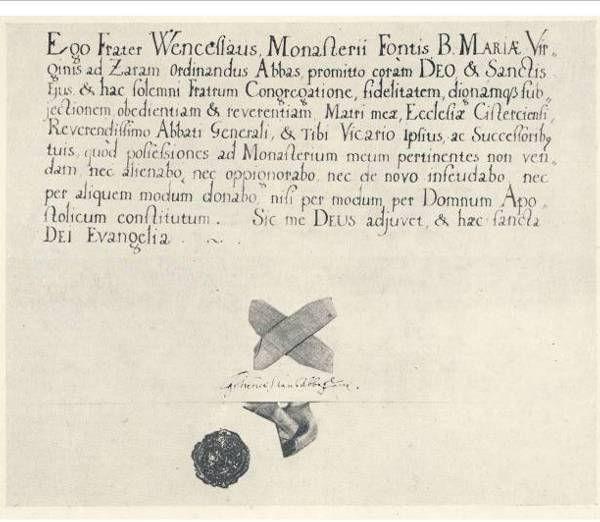 Ego Frater Wenceslaus, Monasterii Fontis B. MARIÆ Vir=
ginis ad Zaram Ordinandus Abbas, promitto coràm DEO, & Sanctis
Ejus, & hac solemni Fratrum Congregatione, fidelitatem, dignamqß sub,
jectionem, obedientiam & reverentiam Matri meæ, Ecclesiæ Cisterciensi,
Reverendissimo Abbati Generali, & Tibi Vicario Ipsius, ac Successorib,
tuis, quòd possessiones ad Monasterium meum pertinentes non ven,
dam, nec alienabo, nec oppignorabo, nec de novo infeudabo, nec
per aliquem modum donabo, nisi per modum, per Domnum Apo,
stolicum constitutum. Sic me DEUS adjuvet, & hæc sancta
DEI Evangelia.